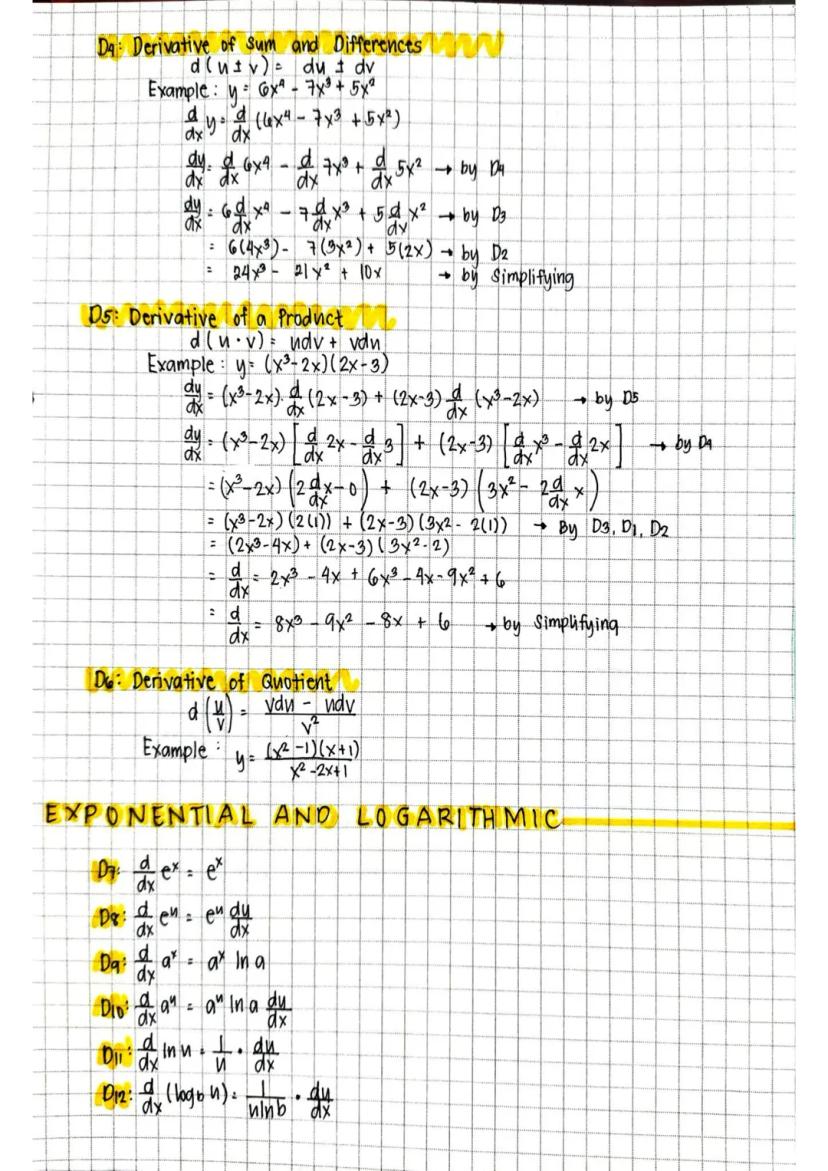 D4: Derivative of Sum and Differences
d(u ± v) = du ± dv
Example: y = 6x⁴ - 7x³ + 5x²
d/dx y = d/dx (6x⁴ - 7x³ + 5x²)
dy/dx = d/dx 6x⁴ - d/dx 7x³ + d/dx 5x² → by D4
dy/dx = 6 d/dx x⁴ - 7 d/dx x³ + 5 d/dx x² → by D3
= 6(4x³) - 7(3x²) + 5(2x) → by D2
= 24x³ - 21x² + 10x → by Simplifying
D5: Derivative of a Product
d(u · v) = udv + vdu
Example: y = (x³-2x)(2x-3)
dy/dx = (x³-2x) · d/dx (2x-3) + (2x-3) d/dx (x³-2x) → by D5
dy/dx = (x³-2x) [d/dx 2x - d/dx 3] + (2x-3) [d/dx x³ - d/dx 2x] → by D4
= (x³-2x) (2 d/dx x - 0) + (2x-3) (3x² - 2 d/dx x)
= (x³-2x) (2(1)) + (2x-3) (3x² - 2(1)) → By D3, D1, D2
= (2x³-4x) + (2x-3) (3x²-2)
= d/dx = 2x³ - 4x + 6x³ - 4x - 9x² + 6
= d/dx = 8x³ - 9x² - 8x + 6 → by Simplifying
D6: Derivative of Quotient
d (u/v) = (vdu - udv)/v²
Example: y = (x²-1)(x+1)/(x²-2x+1)
EXPONENTIAL AND LOGARITHMIC
D7: d/dx eˣ = eˣ
D8: d/dx eᵘ = eᵘ du/dx
D9: d/dx aˣ = aˣ ln a
D10: d/dx aᵘ = aᵘ ln a du/dx
D11: d/dx ln u = 1/u · du/dx
D12: d/dx (log b u) = 1/(u ln b) · du/dx